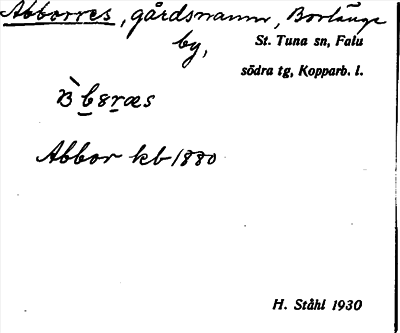 Abborres, gårdsnamn, Borlänge
by, St. Tuna sn, Falu
södra tg, Kopparb. l.
Abbor kb 1880
H. Ståhl 1930